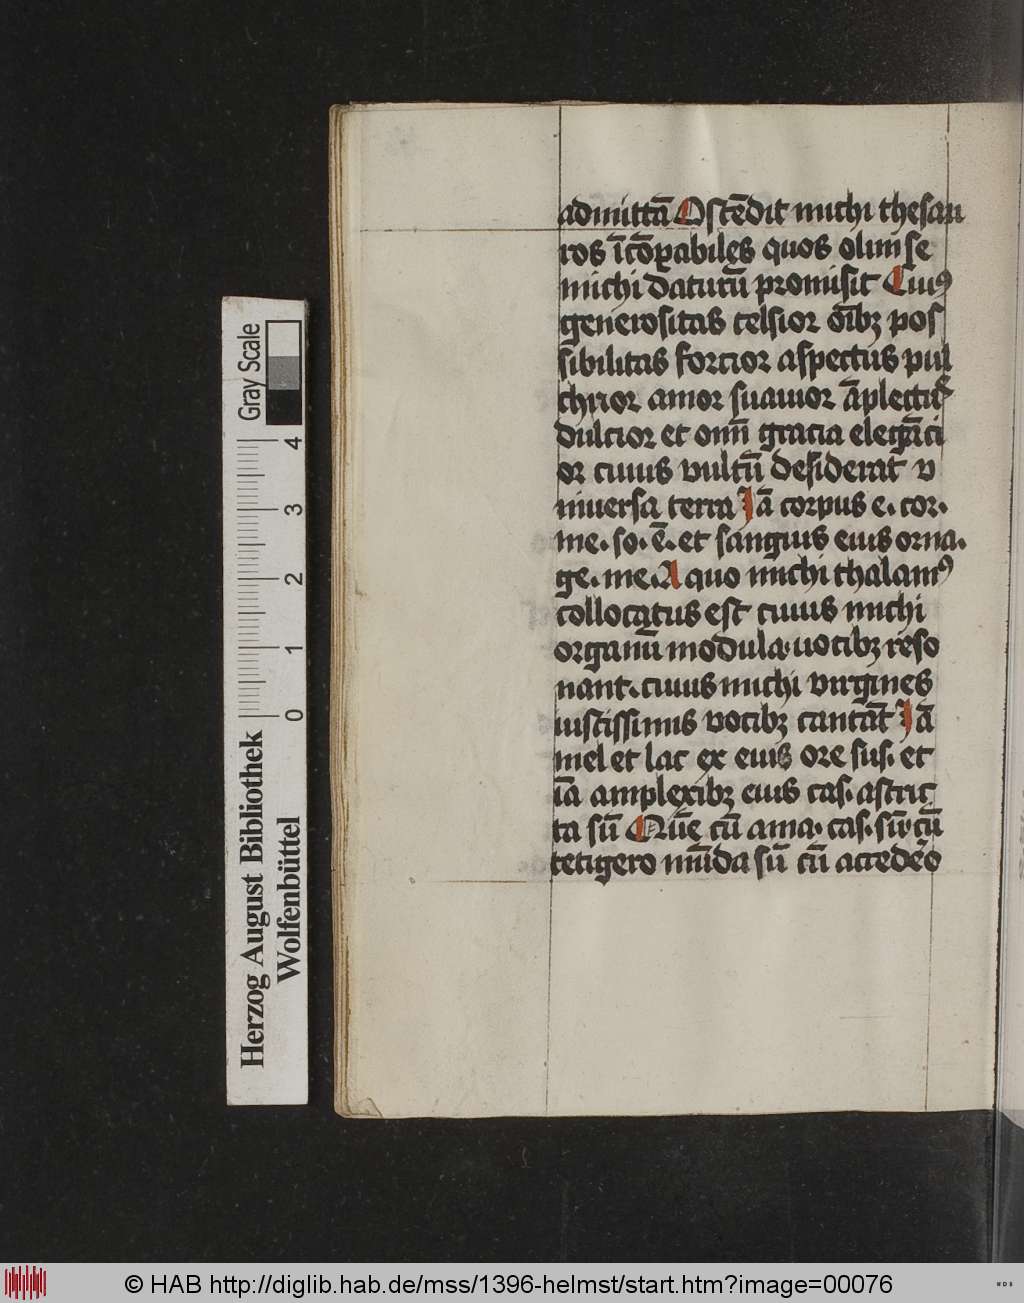 admittā Ostēdit michi thesau
ros īcōꝑabiles quos olim se
michi daturū promisit Cuiꝰ
generositas celsior oībꝫ pos
sibilitas forcior aspectus pul
chrior amor suauior āplectitʳ
dulcior et omī gracia elegāci
or cuius vultū desiderat v
niuersa terra Jā corpus e. cor.
me. so. ē. et sanguis eius orna.
ge. me. A quo michi thalamꝰ
collocatus est cuius michi
organū modula. uocibꝫ reso
nant. cuius michi virgines
iustissimis vocibꝫ cantāt Jā
mel et lac ex eius ore sus. et
iā amplexibꝫ eius cas. astric
ta sū Quē cū ama. cas. sū. cū
tetigero mūda sū cū accedēo
Gray Scale
4
3
2
1
0
Herzog August Bibliothek
Wolfenbüttel
© HAB http://diglib.hab.de/mss/1396-helmst/start.htm?image=00076